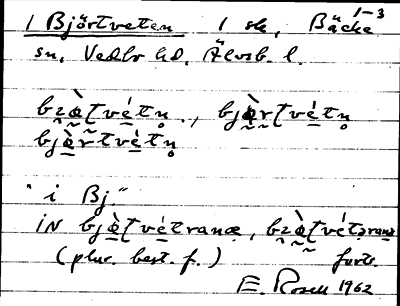 1 Björtveten 1 sk, Bäcke 1-3
sn, Vedbo hd, Älvsb. l.
bzø̀ʈvét̠n̥., bjø̀rʈvét̠n̥
bjø̀rtvét̠n̥
"i Bj."
iN bjø̀ʈvét̠ranæ, bzø̀ʈvét̠əranæ
(plur. best. f.) forts.
E. Rosell 1962